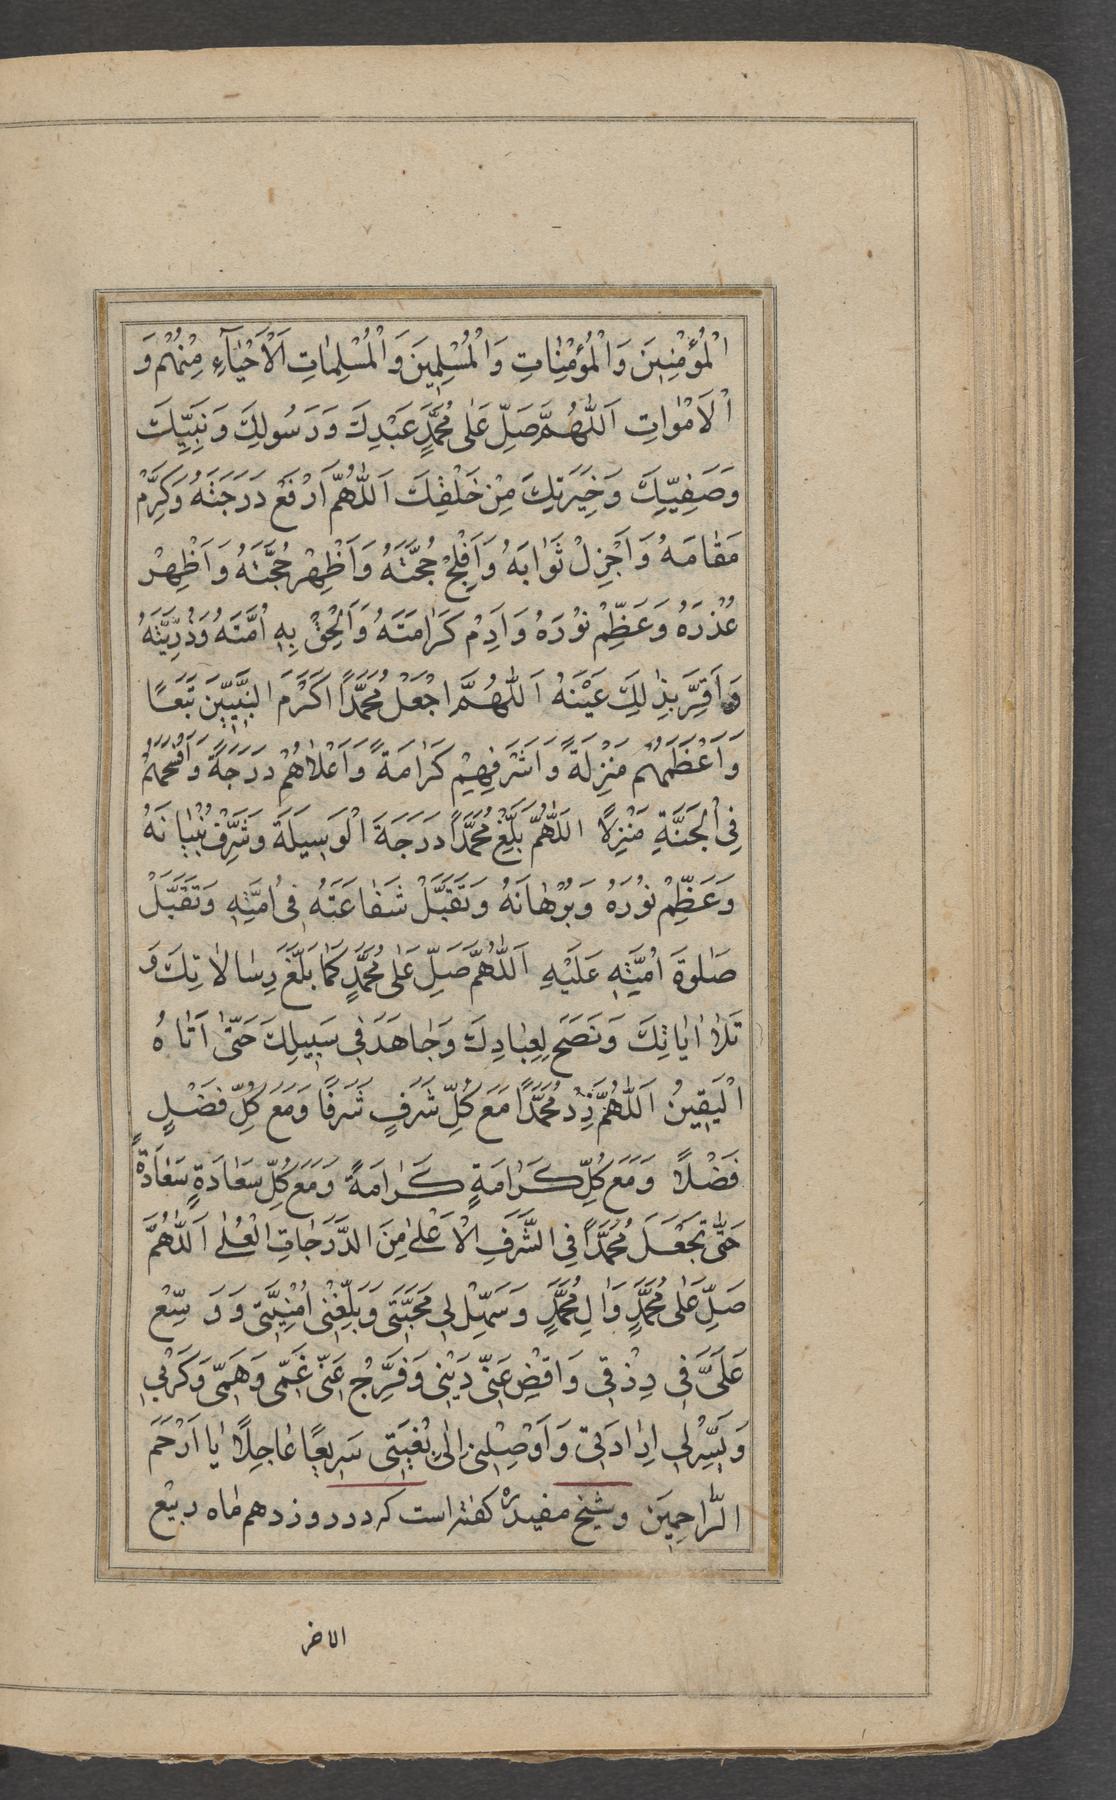 الْمُؤْمِنِينَ وَالْمُؤْمِنَاتِ وَالْمُسْلِمِينَ وَالْمُسْلِمَاتِ اَلْاَحْيَآءِ مِنْهُمْ وَ
الْاَمْوَاتِ اَللّٰهُمَّ صَلِّ عَلٰى مُحَمَّدٍ عَبْدِكَ وَرَسُولِكَ وَنَبِيِّكَ
وَصَفِيِّكَ وَخِيَرَتِكَ مِنْ خَلْقِكَ اَللّٰهُمَّ ارْفَعْ دَرَجَتَهُ وَكَرِّمْ
مَقَامَهُ وَاَجْزِلْ ثَوَابَهُ وَاَفْلِجْ حُجَّتَهُ وَاَظْهِرْ حُجَّتَهُ وَاَظْهِرْ
عُذْرَهُ وَعَظِّمْ نُوْرَهُ وَاَدِمْ كَرَامَتَهُ وَاَلْحِقْ بِهِ اُمَّتَهُ وَذُرِّيَّتَهُ
وَاَقِرَّ بِذٰلِكَ عَيْنَهُ اَللّٰهُمَّ اجْعَلْ مُحَمَّدًا اَكْرَمَ النَّبِيِّينَ تَبَعًا
وَاَعْظَمَهُمْ مَنْزِلَةً وَاَشْرَفَهِيْمْ كَرَامَةً وَاَعْلاٰهُمْ دَرَجَةً وَاَفْسَحَهُمْ
فِى الْجَنَّةِ مَنْزِلًا اَللّٰهُمَّ بَلِّغْ مُحَمَّدًا دَرَجَةَ الْوَسِيلَةَ وَشَرِّفْ بُنْيَانَهُ
وَعَظِّمْ نُوْرَهُ وَبُرْهَانَهُ وَتَقَبَّلْ شَفَاعَتَهُ فِى اُمَّتِهِ وَتَقَبَّلْ
صَلٰوةَ اُمَّتِهِ عَلَيْهِ اَللّٰهُمَّ صَلِّ عَلٰى مُحَمَّدٍ كَمَا بَلَّغَ رِسَالاٰتِكَ وَ
تَلاٰ اٰيَاتِكَ وَنَصَحَ لِعِبَادِكَ وَجَاهَدَ فِى سَبِيلِكَ حَتّٰى اَتَاهُ
الْيَقِينُ اَللّٰهُمَّ زِدْ مُحَمَّدًا مَعَ كُلِّ شَرَفٍ شَرَفًا وَمَعَ كُلِّ فَضْلٍ
فَضْلًا وَمَعَ كُلِّ كَرَامَةٍ كَرَامَةً وَمَعَ كُلِّ سَعَادَةٍ سَعَادَةً
حَتّٰى تَجْعَلَ مُحَمَّدًا فِى الشَّرَفِ الْاَعْلٰى مِنَ الدَّرَجَاتِ الْعُلٰى اَللّٰهُمَّ
صَلِّ عَلٰى مُحَمَّدٍ وَاٰلِ مُحَمَّدٍ وَسَهِّلْ لِى مَحَبَّتِى وَبَلِّغْنِى اُمْنِيَّتِى وَوَسِّعْ
عَلَىَّ فِى رِزْقِى وَاقْضِ عَنِّى دَيْنِى وَفَرِّجْ عَنِّى غَمِّى وَهَمِّى وَكَرْبِى
وَيَسِّرْ لِى اِرَادَتِى وَاَوْصِلْنِى اِلٰى بُغْيَتِى سَرِيعًا عَاجِلًا يَا اَرْحَمَ
الرَّاحِمِينَ وشيخ مفيدره كفته است كه در روز دهم ماه ربيع
الاخر